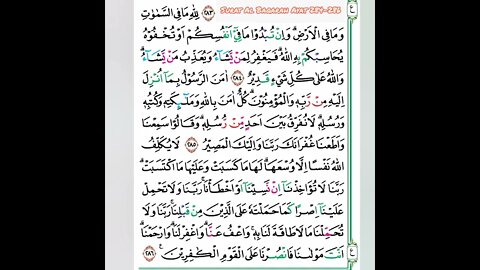 Surat Al Baqarah Ayat 284-286
٢٨٣ لِلّٰهِ مَا فِى السَّمٰوٰتِ
وَمَا فِى الْاَرْضِ ۗ وَاِنْ تُبْدُوْا مَا فِيْٓ اَنْفُسِكُمْ اَوْ تُخْفُوْهُ
يُحَاسِبْكُمْ بِهِ اللّٰهُ ۗ فَيَغْفِرُ لِمَنْ يَّشَاۤءُ وَيُعَذِّبُ مَنْ يَّشَاۤءُ ۗ
وَاللّٰهُ عَلٰى كُلِّ شَيْءٍ قَدِيْرٌ ٢٨٤ اٰمَنَ الرَّسُوْلُ بِمَآ اُنْزِلَ
اِلَيْهِ مِنْ رَّبِّهٖ وَالْمُؤْمِنُوْنَ ۗ كُلٌّ اٰمَنَ بِاللّٰهِ وَمَلٰۤىِٕكَتِهٖ وَكُتُبِهٖ
وَرُسُلِهٖ ۗ لَا نُفَرِّقُ بَيْنَ اَحَدٍ مِّنْ رُّسُلِهٖ ۗ وَقَالُوْا سَمِعْنَا
وَاَطَعْنَا غُفْرَانَكَ رَبَّنَا وَاِلَيْكَ الْمَصِيْرُ ٢٨٥ لَا يُكَلِّفُ
اللّٰهُ نَفْسًا اِلَّا وُسْعَهَا ۗ لَهَا مَا كَسَبَتْ وَعَلَيْهَا مَا اكْتَسَبَتْ ۗ
رَبَّنَا لَا تُؤَاخِذْنَآ اِنْ نَّسِيْنَآ اَوْ اَخْطَأْنَا ۚ رَبَّنَا وَلَا تَحْمِلْ
عَلَيْنَآ اِصْرًا كَمَا حَمَلْتَهٗ عَلَى الَّذِيْنَ مِنْ قَبْلِنَا ۚ رَبَّنَا وَلَا
تُحَمِّلْنَا مَا لَا طَاقَةَ لَنَا بِهٖ ۚ وَاعْفُ عَنَّا ۗ وَاغْفِرْ لَنَا ۗ وَارْحَمْنَا ۗ
اَنْتَ مَوْلٰىنَا فَانْصُرْنَا عَلَى الْقَوْمِ الْكٰفِرِيْنَ ٢٨٦